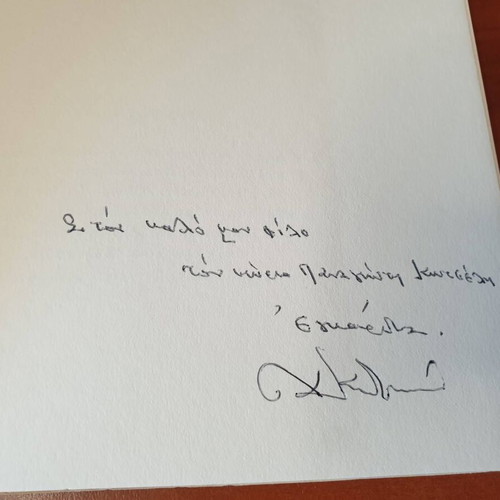 Στόν καλό μου φίλο
τόν κύριο Παναγιώτη
ἐγκάρδια.